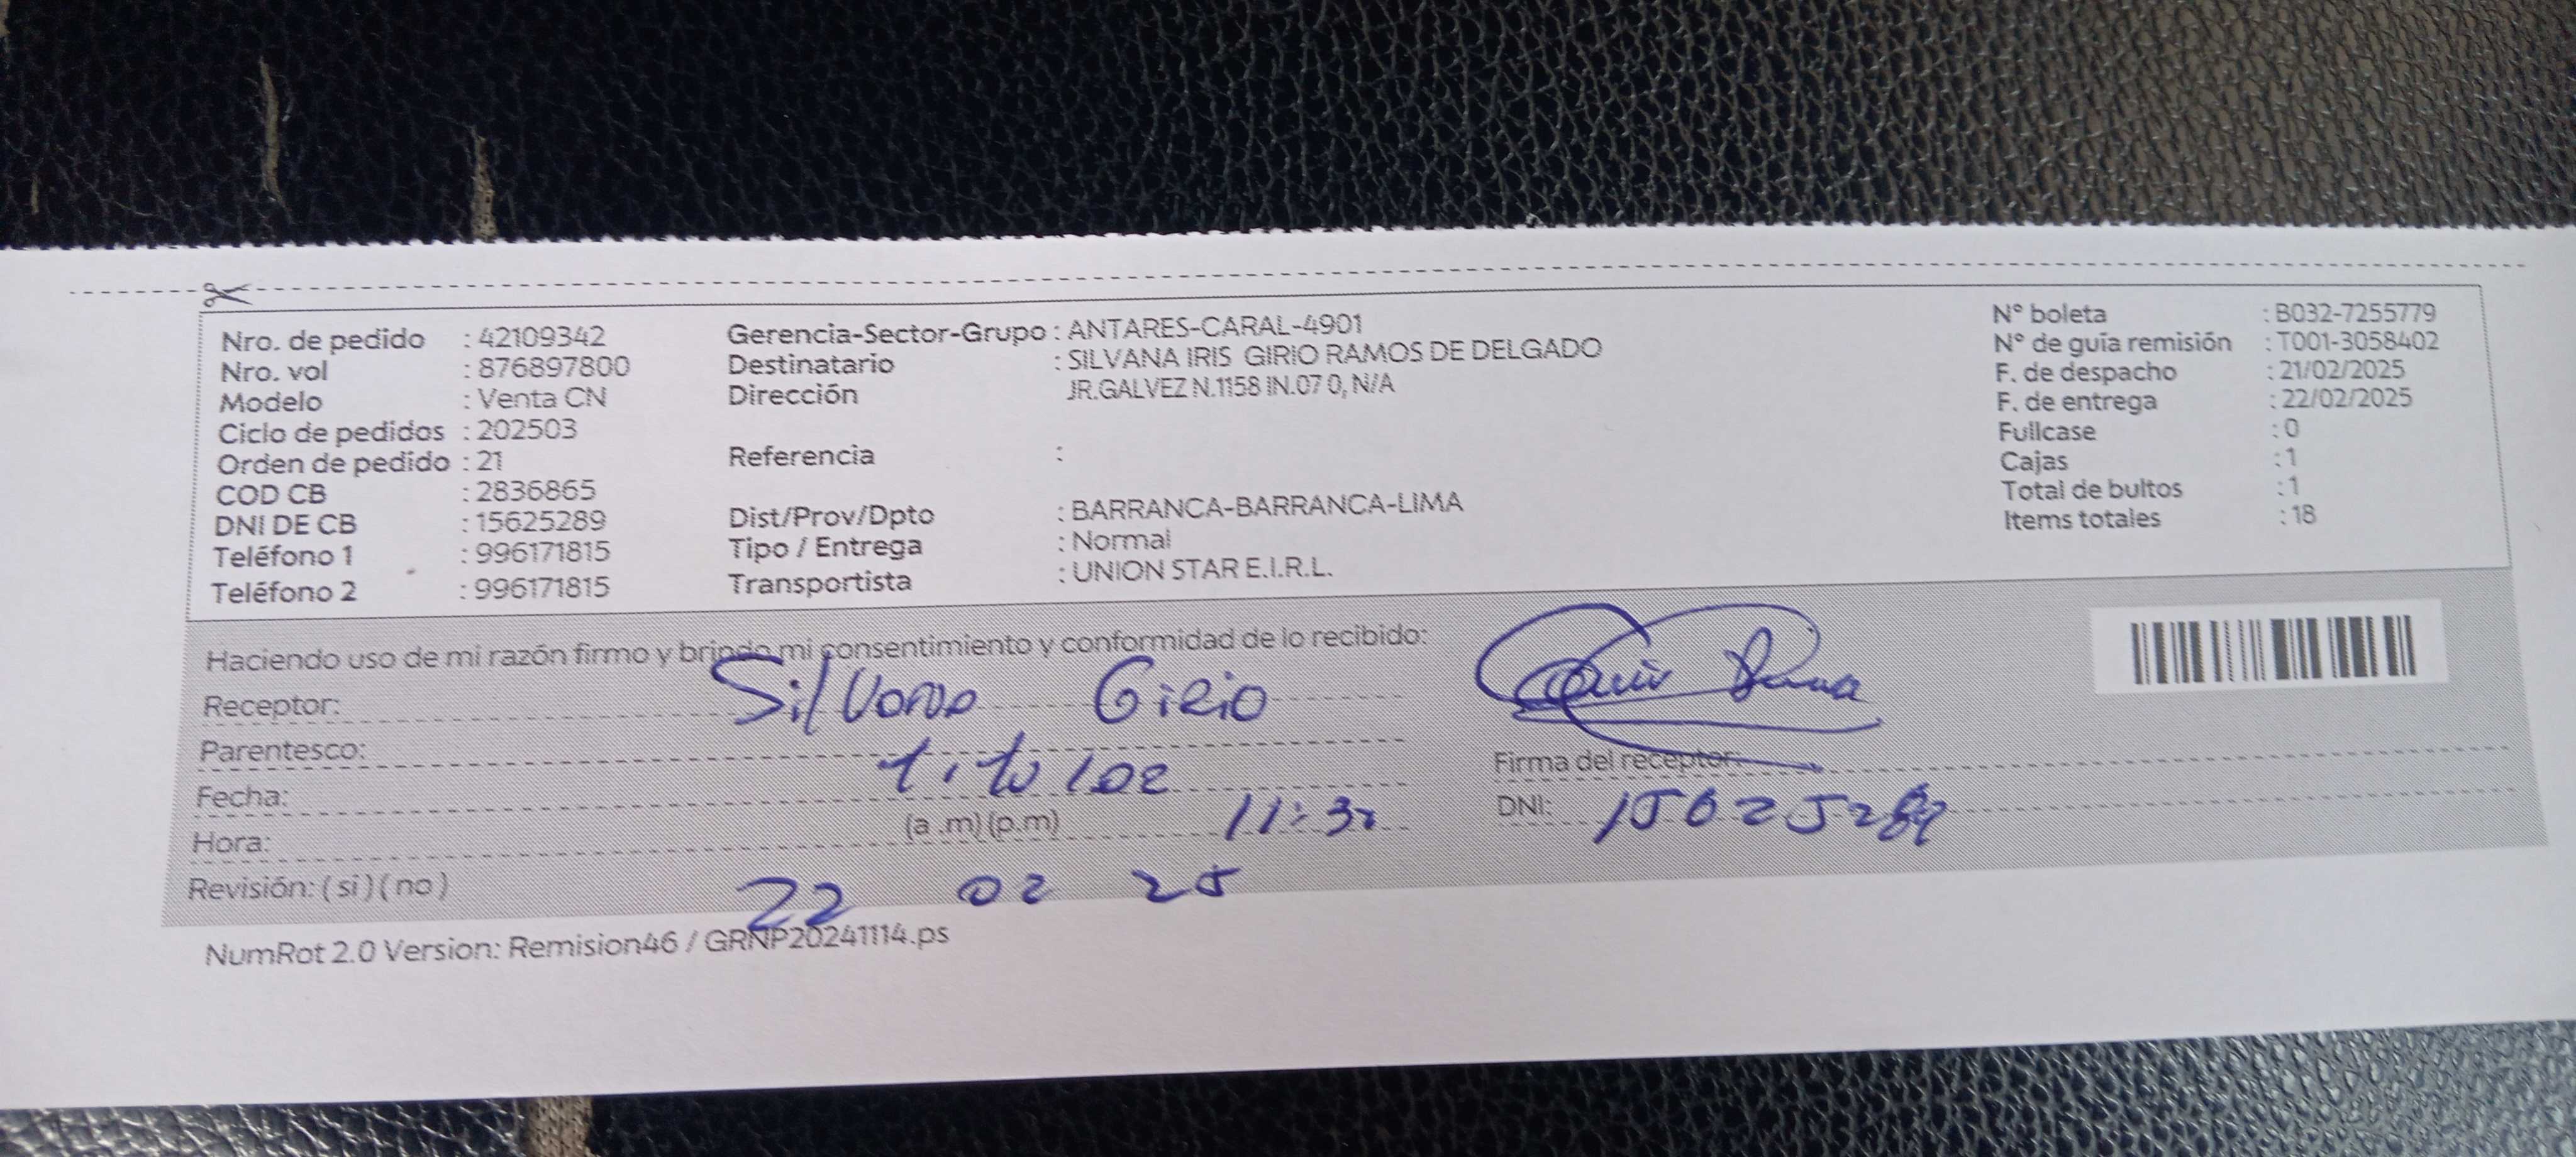 Nro. de pedido : 42109342
Nro. vol : 876897800
Modelo : Venta CN
Ciclo de pedidos : 202503
Orden de pedido : 21
COD CB : 2836865
DNI DE CB : 15625289
Teléfono 1 : 996171815
Teléfono 2 : 996171815
Gerencia-Sector-Grupo : ANTARES-CARAL-4901
Destinatario : SILVANA IRIS GIRIO RAMOS DE DELGADO
Dirección JR.GALVEZ N.1158 IN.07 0, N/A
Referencia :
Dist/Prov/Dpto : BARRANCA-BARRANCA-LIMA
Tipo / Entrega : Normal
Transportista : UNION STAR E.I.R.L.
N° boleta : B032-7255779
N° de guía remisión : T001-3058402
F. de despacho : 21/02/2025
F. de entrega : 22/02/2025
Fullcase : 0
Cajas : 1
Total de bultos : 1
Items totales : 18
Haciendo uso de mi razón firmo y brindo mi consentimiento y conformidad de lo recibido:
Receptor: Silvana Girio
Parentesco: titular
Fecha:
Hora: (a .m) (p.m) 11:32
Revisión: ( si ) ( no ) 22 02 25
Firma del receptor:
DNI: 15625289
NumRot 2.0 Version: Remision46 / GRNP20241114.ps